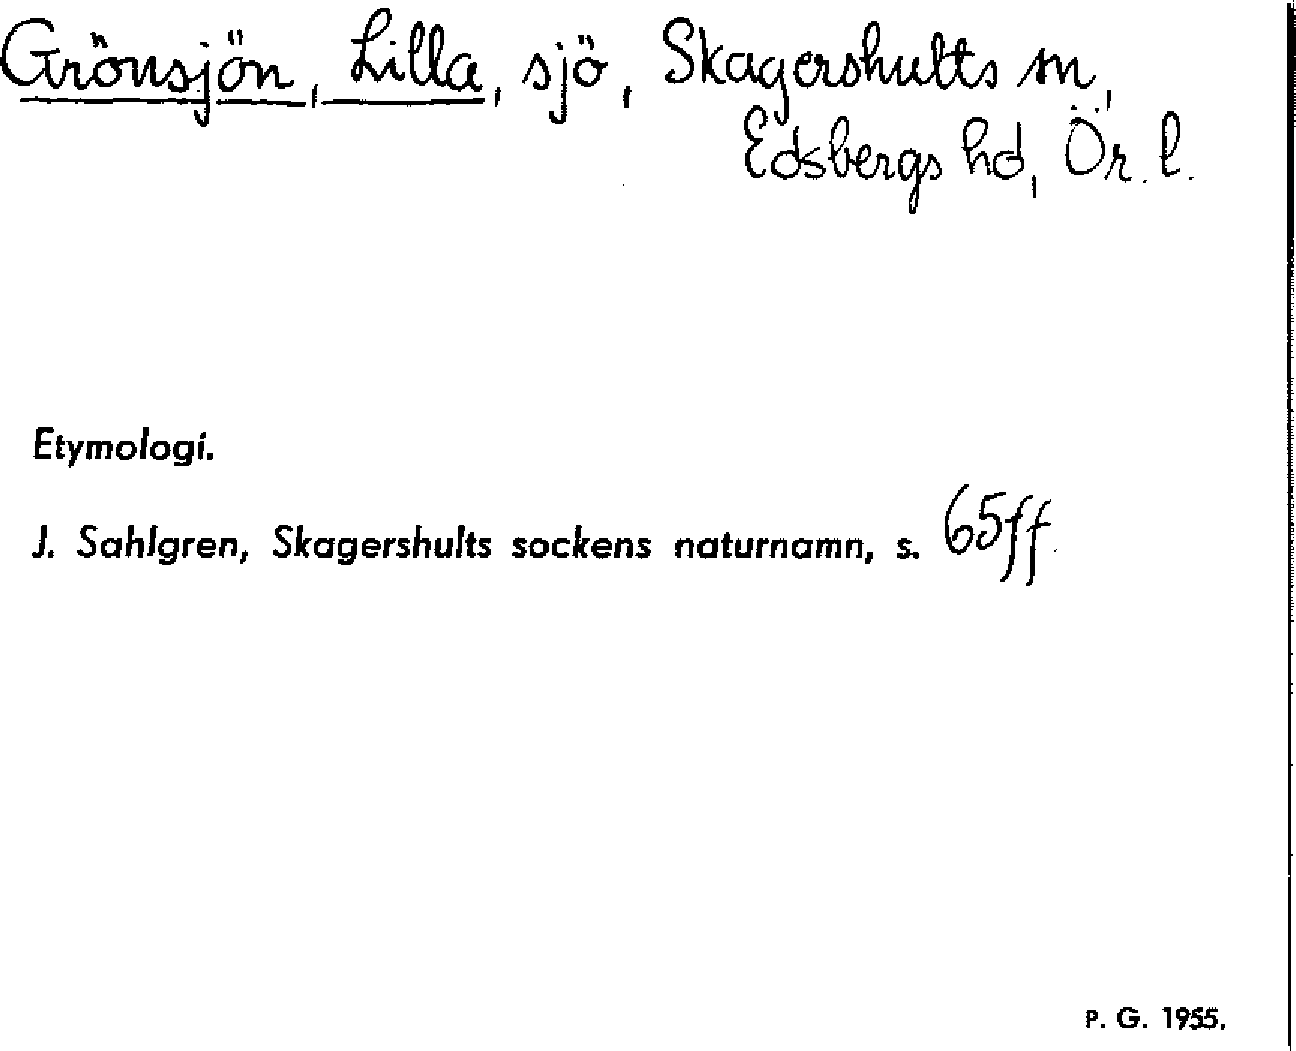 Grönsjön, Lilla, sjö, Skagershults sn,
Edsbergs hd, Ör. l.
Etymologi.
J. Sahlgren, Skagershults sockens naturnamn, s. 65ff.
P. G. 1955.